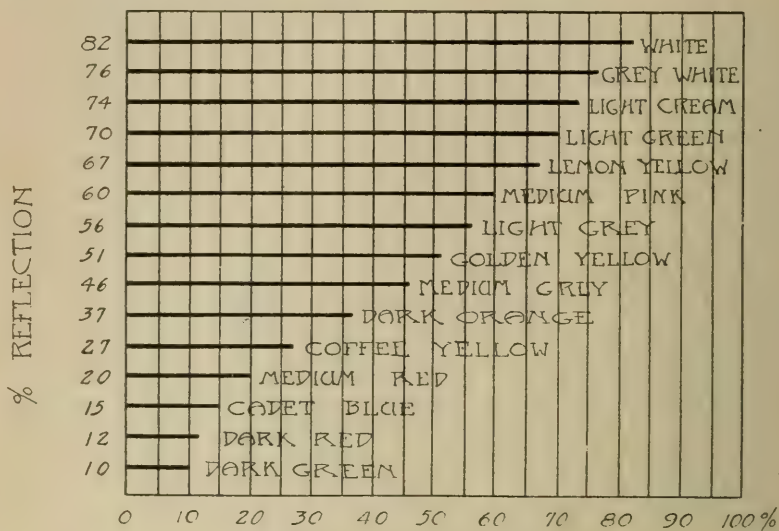 82 WHITE
76 GREY WHITE
74 LIGHT CREAM
70 LIGHT GREEN
67 LEMON YELLOW
60 MEDIUM PINK
56 LIGHT GREY
51 GOLDEN YELLOW
46 MEDIUM GREY
37 DARK ORANGE
27 COFFEE YELLOW
20 MEDIUM RED
15 CADET BLUE
12 DARK RED
10 DARK GREEN
% REFLECTION
0 10 20 30 40 50 60 70 80 90 100%